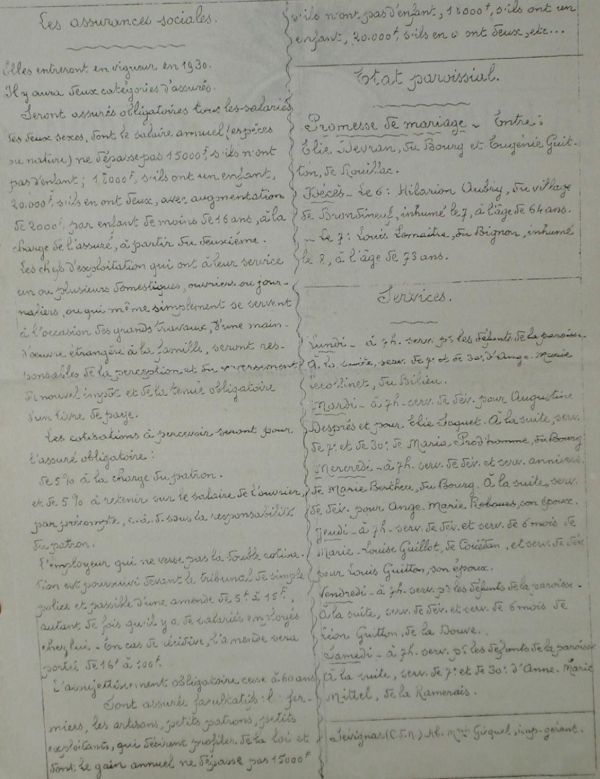 Les assurances sociales.
Elles entreront en vigueur en 1930.
Il y aura deux catégories d'assurés.
Seront assurés obligatoires tous les salariés
des deux sexes, dont le salaire annuel (espèces
ou nature) ne dépasse pas 15000f, s'ils n'ont
pas d'enfant; 18000f, s'ils ont un enfant,
20.000f, s'ils en ont deux, avec augmentation
de 2000f par enfant de moins de 16 ans, à la
charge de l'assuré, à partir du deuxième.
Les chefs d'exploitation qui ont à leur service
un ou plusieurs domestiques, ouvriers ou jour-
naliers, ou qui même simplement se servent
à l'occasion des grands travaux, d'une main-
d'œuvre étrangère à la famille, seront res-
ponsables de la perception et du versement
du nouvel impôt et de la tenue obligatoire
d'un livre de paye.
Les cotisations à percevoir seront pour
l'assuré obligatoire:
de 5% à la charge du patron.
et de 5% à retenir sur le salaire de l'ouvrier,
par précompte, c.à.d. sous la responsabilité
du patron.
L'employeur qui ne verse pas la double cotisa-
tion est poursuivi devant le tribunal de simple
police et passible d'une amende de 5f à 15f,
autant de fois qu'il y a de salariés employés
chez lui. - En cas de récidive, l'amende sera
portée de 16f à 100f.
L'assujettissement obligatoire cesse à 60 ans
Sont assurés facultatifs: les fer-
miers, les artisans, petits patrons, petits
exploitants, qui désirent profiter de la loi et
dont le gain annuel ne dépasse pas 15000f
s'ils n'ont pas d'enfant, 18000f, s'ils ont un
enfant, 20.000f, s'ils en ont deux, etc...
Etat paroissial.
Promesse de mariage - Entre:
Elie Devran, du Bourg et Eugénie Guit-
ton, de Rouillac.
Décès - Le 6: Hilarion Aubry, du village
de inhumé le 7, à l'âge de 64 ans.
- Le 7: Louis Lemaître, du Bignon, inhumé
le 8, à l'âge de 73 ans.
Services.
Lundi - à 7h. serv. pr les défunts de la paroisse.
À la suite, serv. de 7e et de 30e d'Ange-Marie
du Bilieu.
Mardi - à 7h - serv. de dév. pour Augustine
Després et pour Elie Loquet. À la suite, serv.
de 7e et de 30e de Maria Prod'homme, du Bourg
Mercredi - à 7h. serv. de dév. et serv. annivers.
de Marie Bertheu, du Bourg. À la suite, serv.
de dév. pour Ange-Marie son époux.
Jeudi - à 7h - serv. de dév. et serv. de 6 mois de
Marie-Louise Guillot, de Couëtan, et serv. de dév.
pour Louis Guitton, son époux.
Vendredi - à 7h. serv. pr les défunts de la paroisse.
À la suite, serv. de dév. et serv. de 6 mois de
Léon Guitton, de la Douve.
Samedi - à 7h. serv. pr les défunts de la paroisse
À la suite, serv. de 7e et de 30e d'Anne-Marie
Mittel, de la Ramerais.
Sévignac (C.d.N.) Ab. Guiguel, imp-gérant.